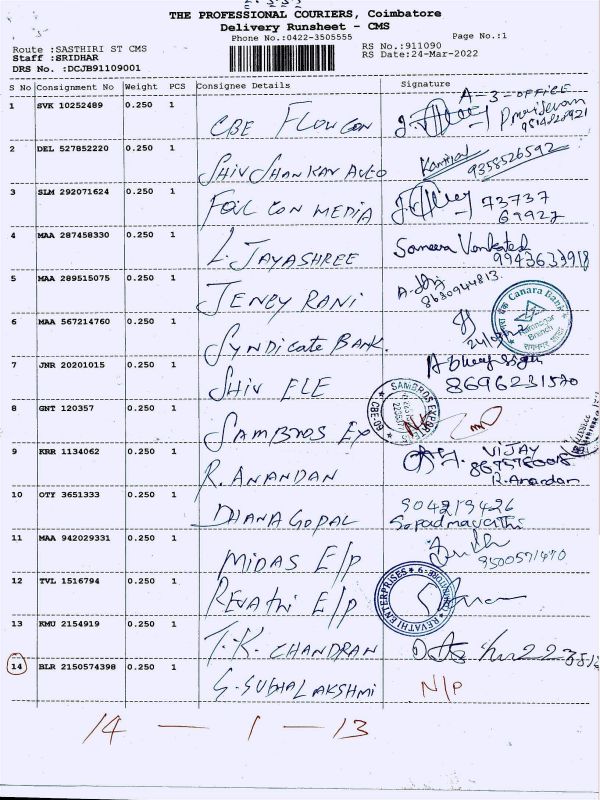 THE PROFESSIONAL COURIERS, Coimbatore
Delivery Runsheet - CMS
Phone No.:0422-3505555
Page No.:1
Route :SASTHIRI ST CMS
RS No.:911090
Staff :SRIDHAR
RS Date:24-Mar-2022
DRS No. :DCJB91109001
S No Consignment No Weight PCS Consignee Details Signature
1 SVK 10252489 0.250 1 CBE FLOWCON A-3-OFFICE
2 DEL 527852220 0.250 1 SHIV SHANKAR AUTO 9358526592
3 SLM 292071624 0.250 1 FOXL CON MEDIA 73737
69927
4 MAA 287458330 0.250 1 L. JAYASHREE Sameera Venkated
9943633918
5 MAA 289515075 0.250 1 JENCY RANI 8630944813
6 MAA 567214760 0.250 1 SYNDICATE BANK
Canara Bank
Ramnagar
Branch
7 JNR 20201015 0.250 1 SHIV ELE 8696231570
8 GNT 120357 0.250 1 SAMBROS EXP
SAMBROS EXPORTS
9 KRR 1134062 0.250 1 R. ANANDAN VIJAY
R. Anandan
10 OTY 3651333 0.250 1 DHANAGOPAL 904219426
Gopadmavathi
11 MAA 942029331 0.250 1 MIDAS E/P 9500571470
12 TVL 1516794 0.250 1 REVATHI E/P
REVATHI ENTERPRISES
13 KMU 2154919 0.250 1 T.K. CHANDRAN
14 BLR 2150574398 0.250 1 S. SUBHALAKSHMI N/P
14 — 1 — 13